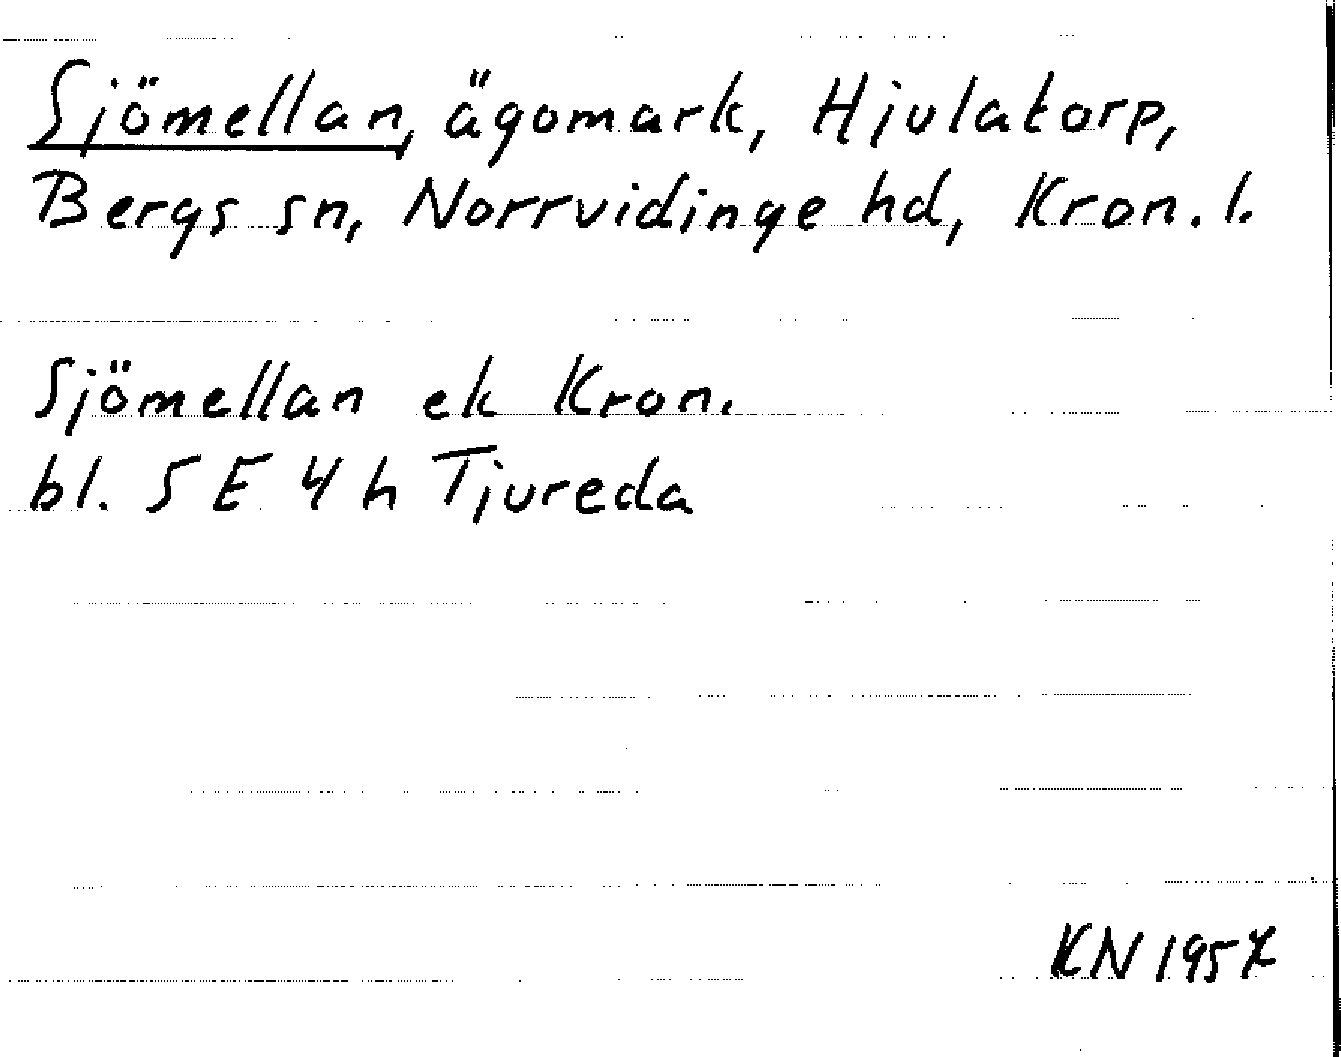 Sjömellan, ägomark, Hjulatorp,
Bergs sn, Norrvidinge hd, Kron. l.
Sjömellan ek Kron.
bl. 5 E 4 h Tjureda
KN 1957